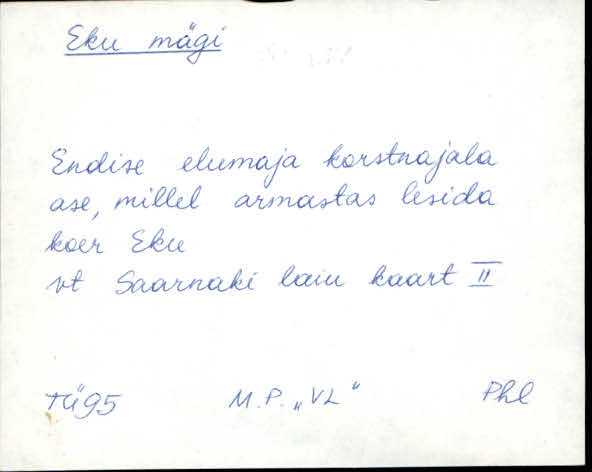 Eku mägi
Endise elumaja korstnajala
ase, millel armastas lesida
koer Eku
vt Saarnaki laiu kaart II
TÜ95 M.P. „VL“ Phl